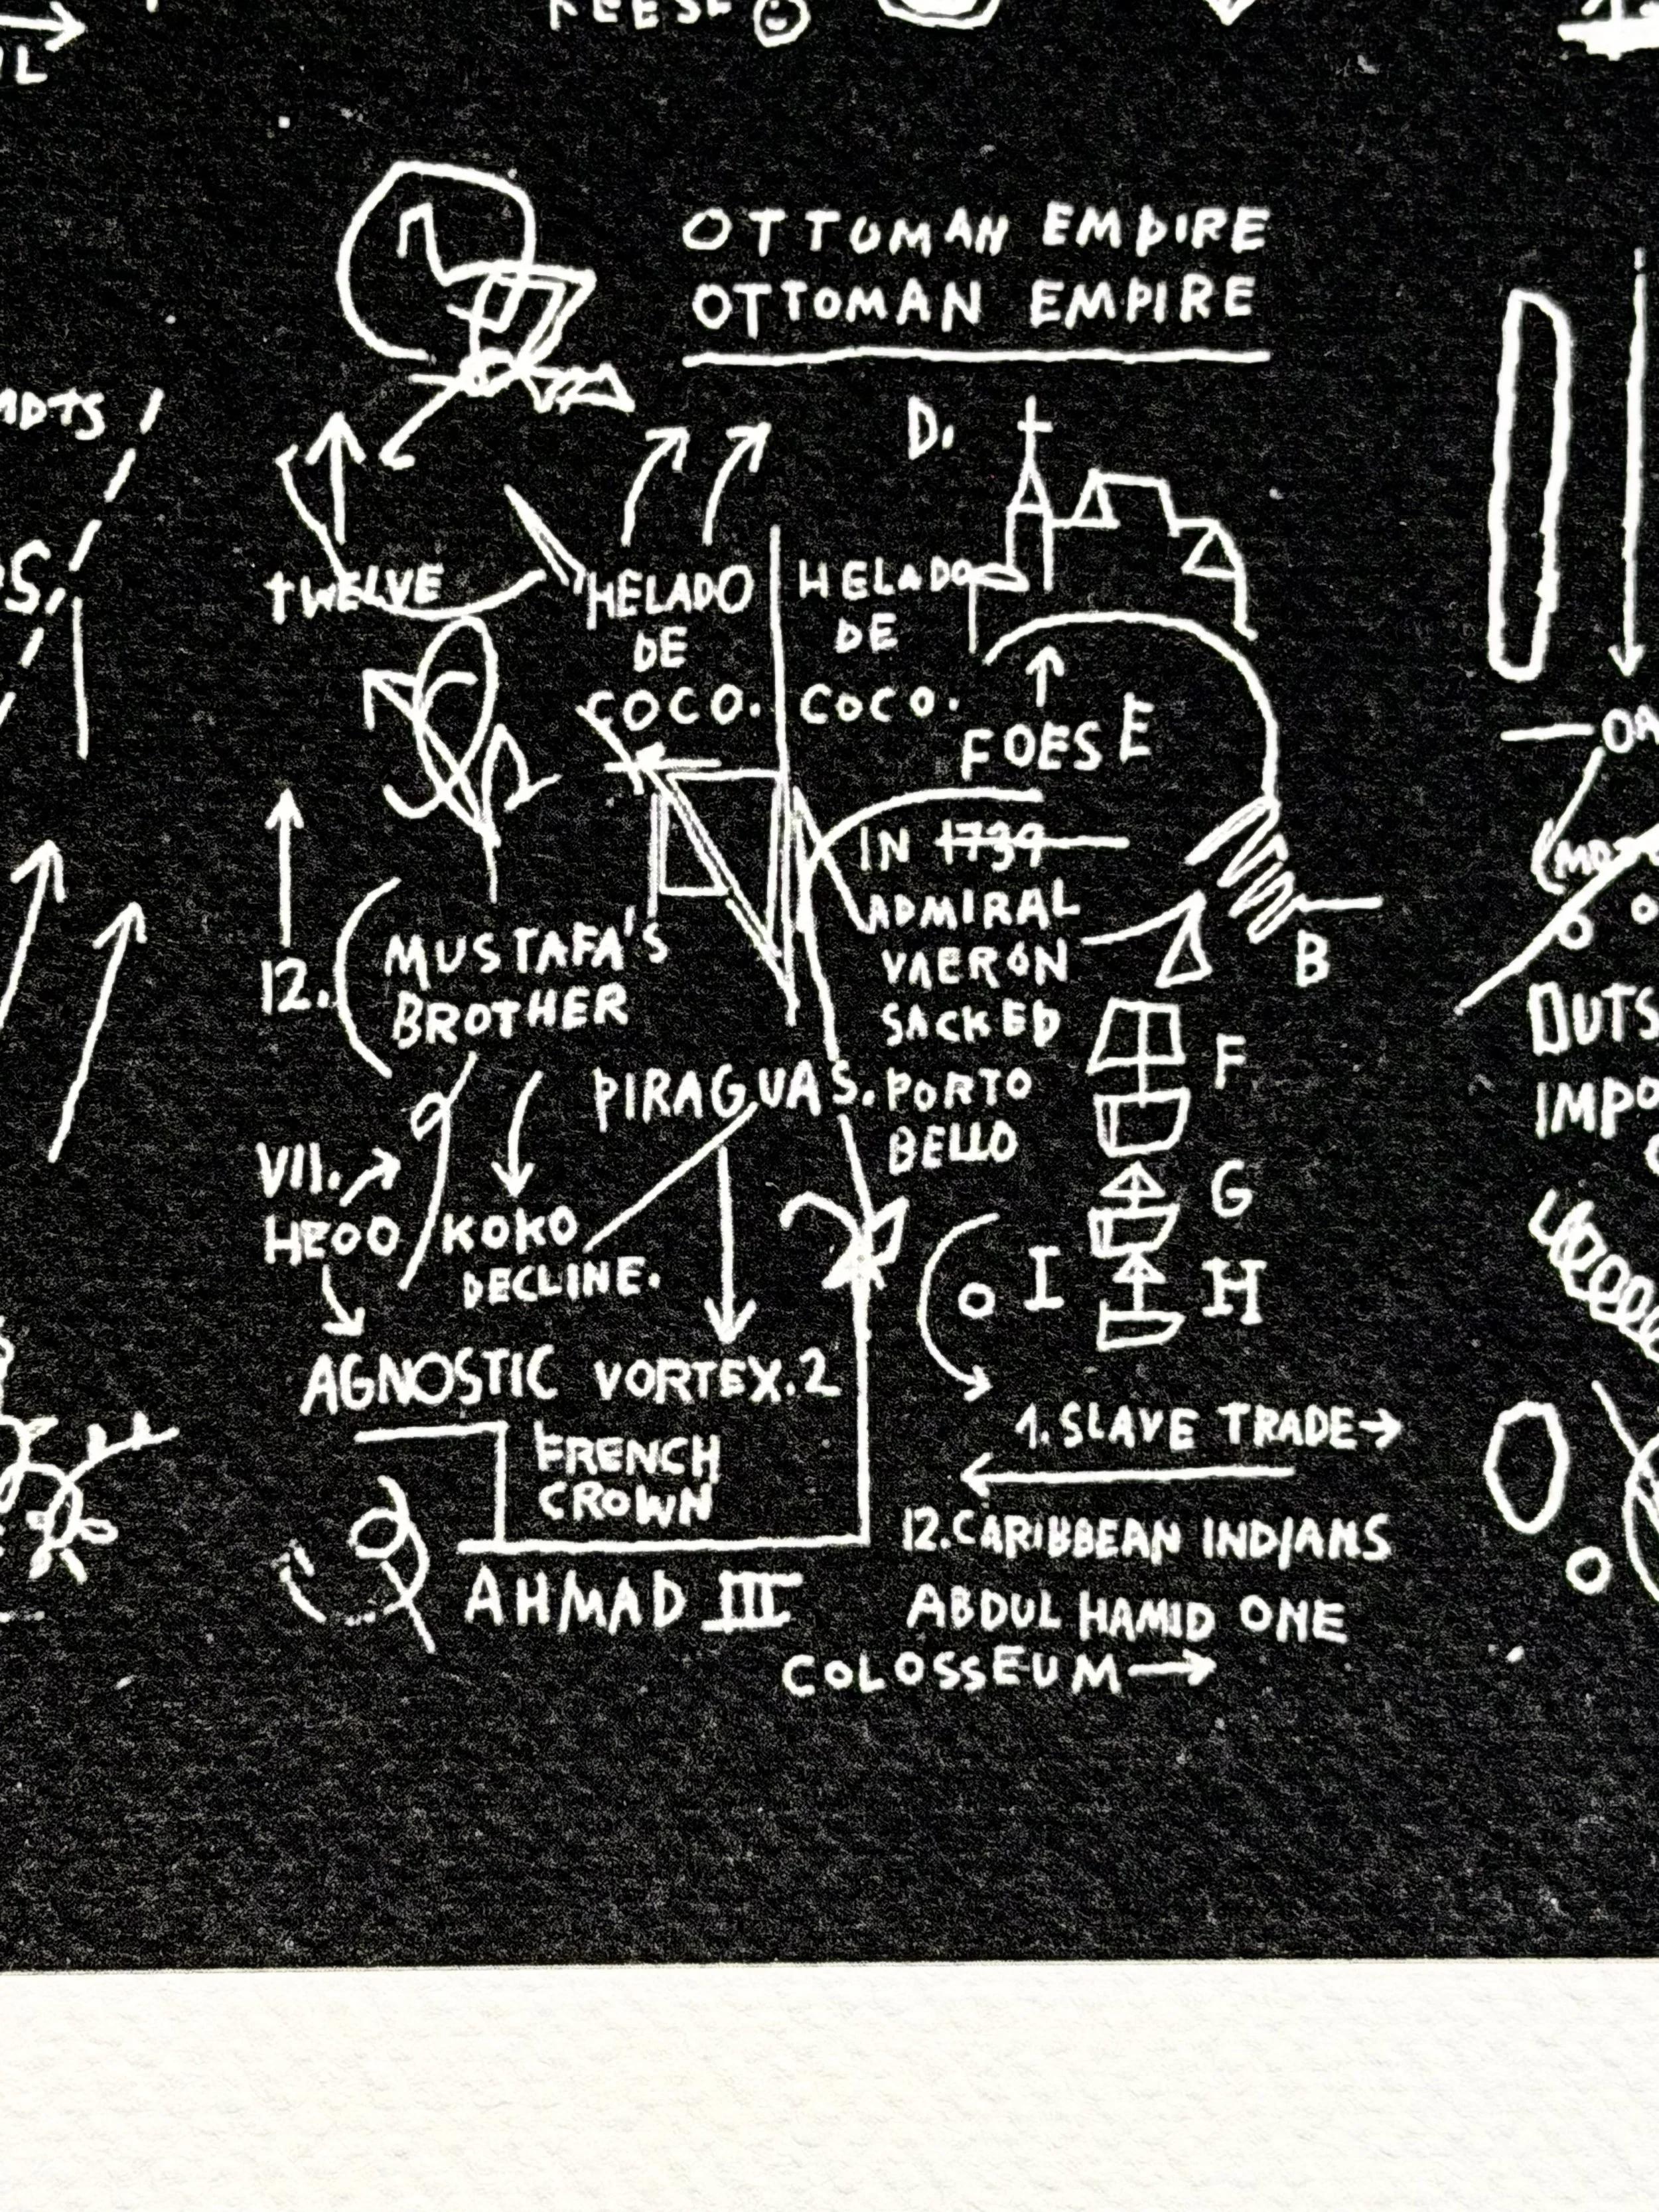 OTTOMAN EMPIRE
OTTOMAN EMPIRE
D.
TWELVE
HELADO
DE
COCO.
HELADO
DE
COCO.
FOESE
IN 1739
ADMIRAL
VAERON
SACKED
PORTO
BELLO
B
12.
MUSTAFA'S
BROTHER
PIRAGUAS.
F
G
H
I
VII.
HEOO
KOKO
DECLINE.
AGNOSTIC VORTEX.2
FRENCH
CROWN
AHMAD III
1. SLAVE TRADE
12. CARIBBEAN INDIANS
ABDUL HAMID ONE
COLOSSEUM